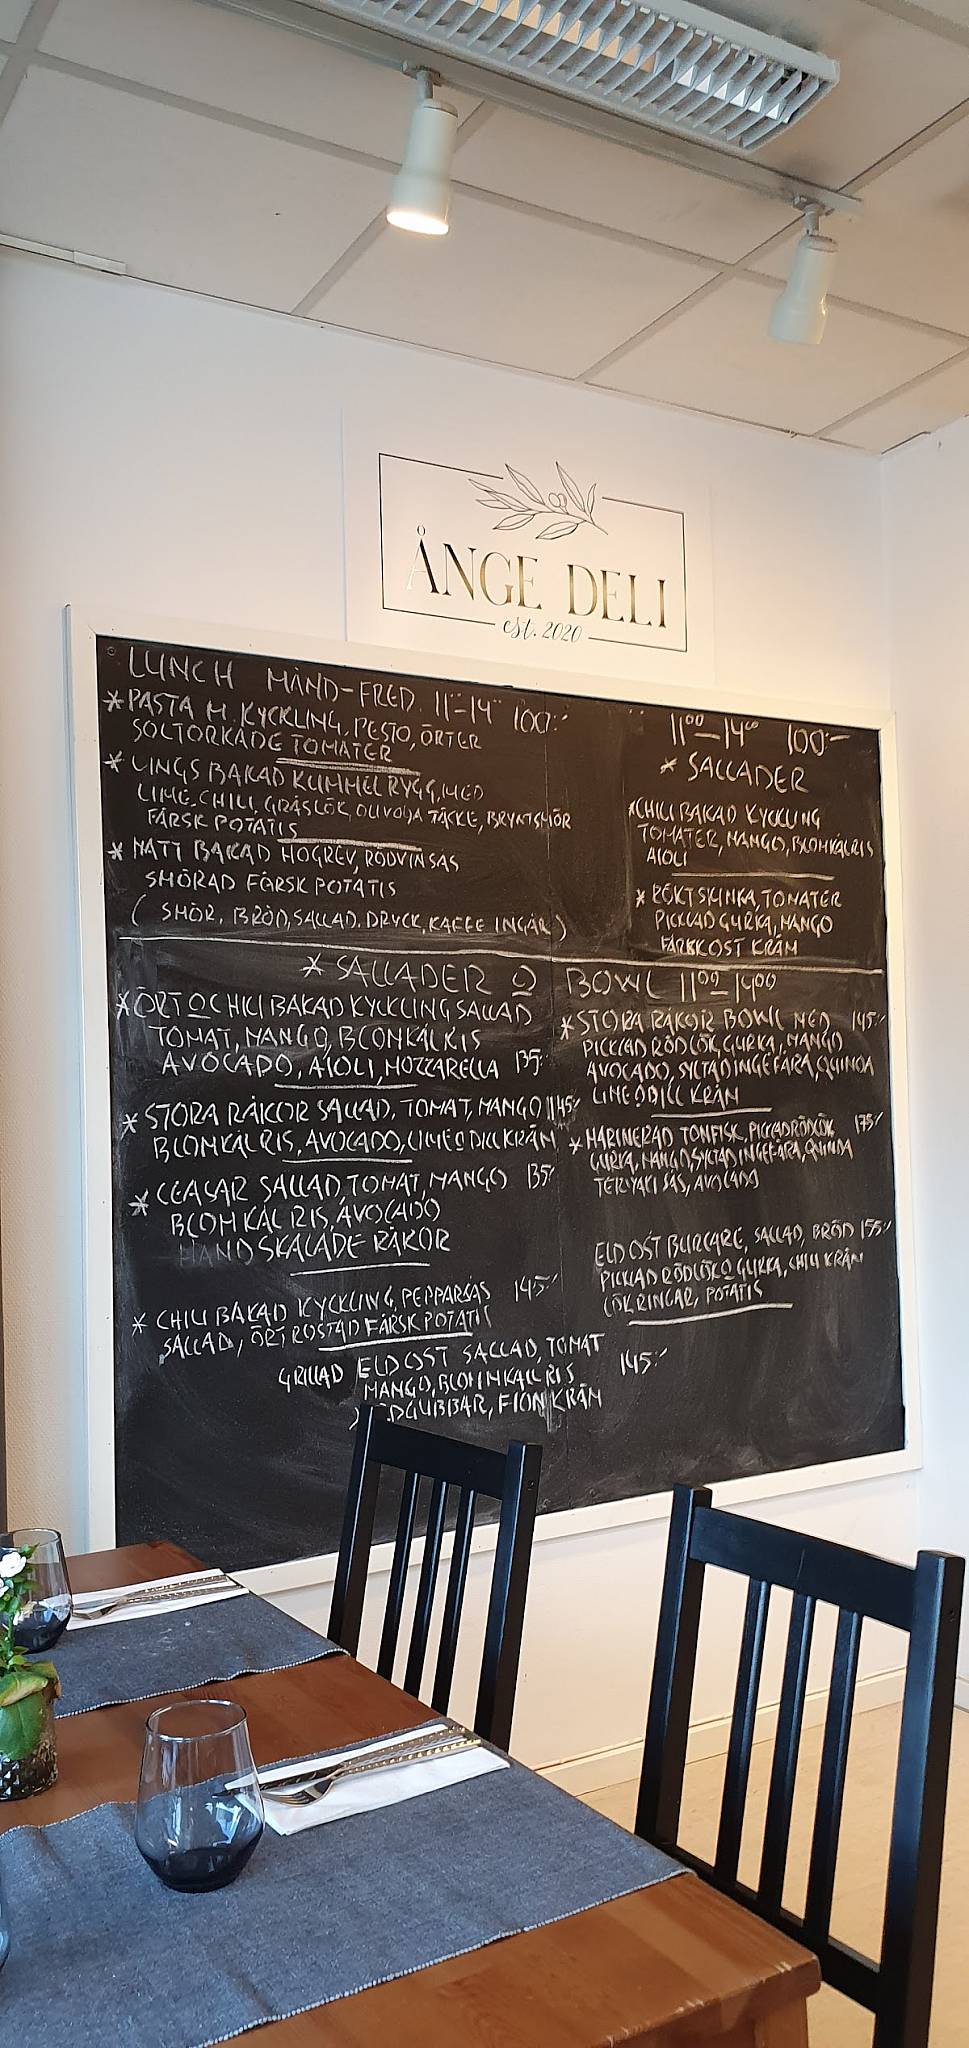 ÅNGE DELI
est. 2020
LUNCH MÅND-FRED. 11⁰⁰-14⁰⁰ 100:-
* PASTA M. KYCKLING, PESTO, ÖRTER
SOLTORKADE TOMATER
* UNGSBAKAD KUMMELRYGG, MED
LIME, CHILI, GRÄSLÖK, OLIVOLJA TÄCKE, BRYNT SMÖR
FÄRSK POTATIS
* NATT BAKAD HÖGREV, RÖDVINSÅS
SMÖRAD FÄRSK POTATIS
( SMÖR, BRÖD, SALLAD, DRYCK, KAFFE INGÅR )
11⁰⁰-14⁰⁰ 100:-
* SALLADER
* CHILI BAKAD KYCKLING
TOMATER, MANGO, BLOMKÅLRIS
AIOLI
* RÖKT SKINKA, TOMATER
PICKLAD GURKA, MANGO
FÄRSKOST KRÄM
* SALLADER O BOWL 11⁰⁰-14⁰⁰
* ÖRT O CHILI BAKAD KYCKLING SALLAD
TOMAT, MANGO, BLOMKÅLRIS
AVOCADO, AIOLI, MOZZARELLA 135:-
* STORA RÄKOR SALLAD, TOMAT, MANGO 145:-
BLOMKÅLRIS, AVOCADO, LIME O DILL KRÄM
* CEASAR SALLAD, TOMAT, MANGO 135:-
BLOMKÅL RIS, AVOCADO
HANDSKALADE RÄKOR
* CHILI BAKAD KYCKLING, PEPPARSÅS 145:-
SALLAD, ÖRT ROSTAD FÄRSK POTATIS
* STORA RÄKOR BOWL MED 145:-
PICKLAD RÖDLÖK, GURKA, MANGO
AVOCADO, SYLTAD INGEFÄRA, QUINOA
LIME O DILL KRÄM
* MARINERAD TONFISK, PICKLAD RÖDLÖK 175:-
GURKA, MANGO, SYLTAD INGEFÄRA, QUINOA
TERIYAKI SÅS, AVOCADO
ELDOST BURGARE, SALLAD, BRÖD 155:-
PICKLAD RÖDLÖK O GURKA, CHILI KRÄM
LÖKRINGAR, POTATIS
GRILLAD ELDOST SALLAD, TOMAT 145:-
MANGO, BLOMKÅLRIS
JORDGUBBAR, FIKON KRÄM